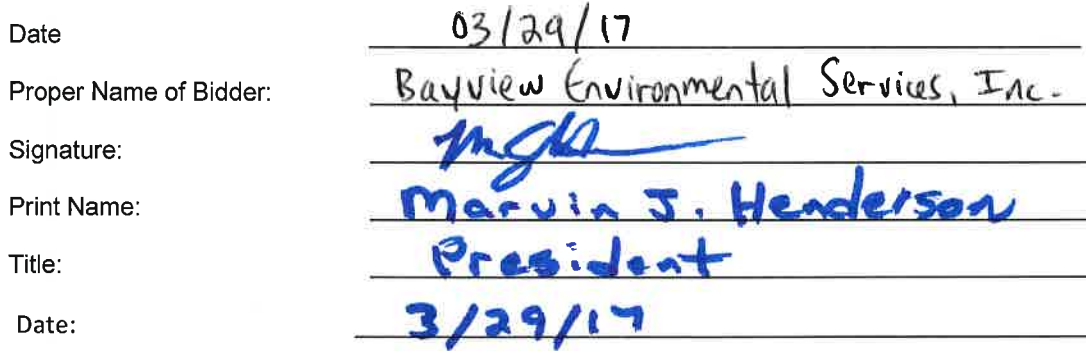 Date 03/29/17
Proper Name of Bidder: Bayview Environmental Services, Inc.
Signature:
Print Name: Marvin J. Henderson
Title: President
Date: 3/29/17